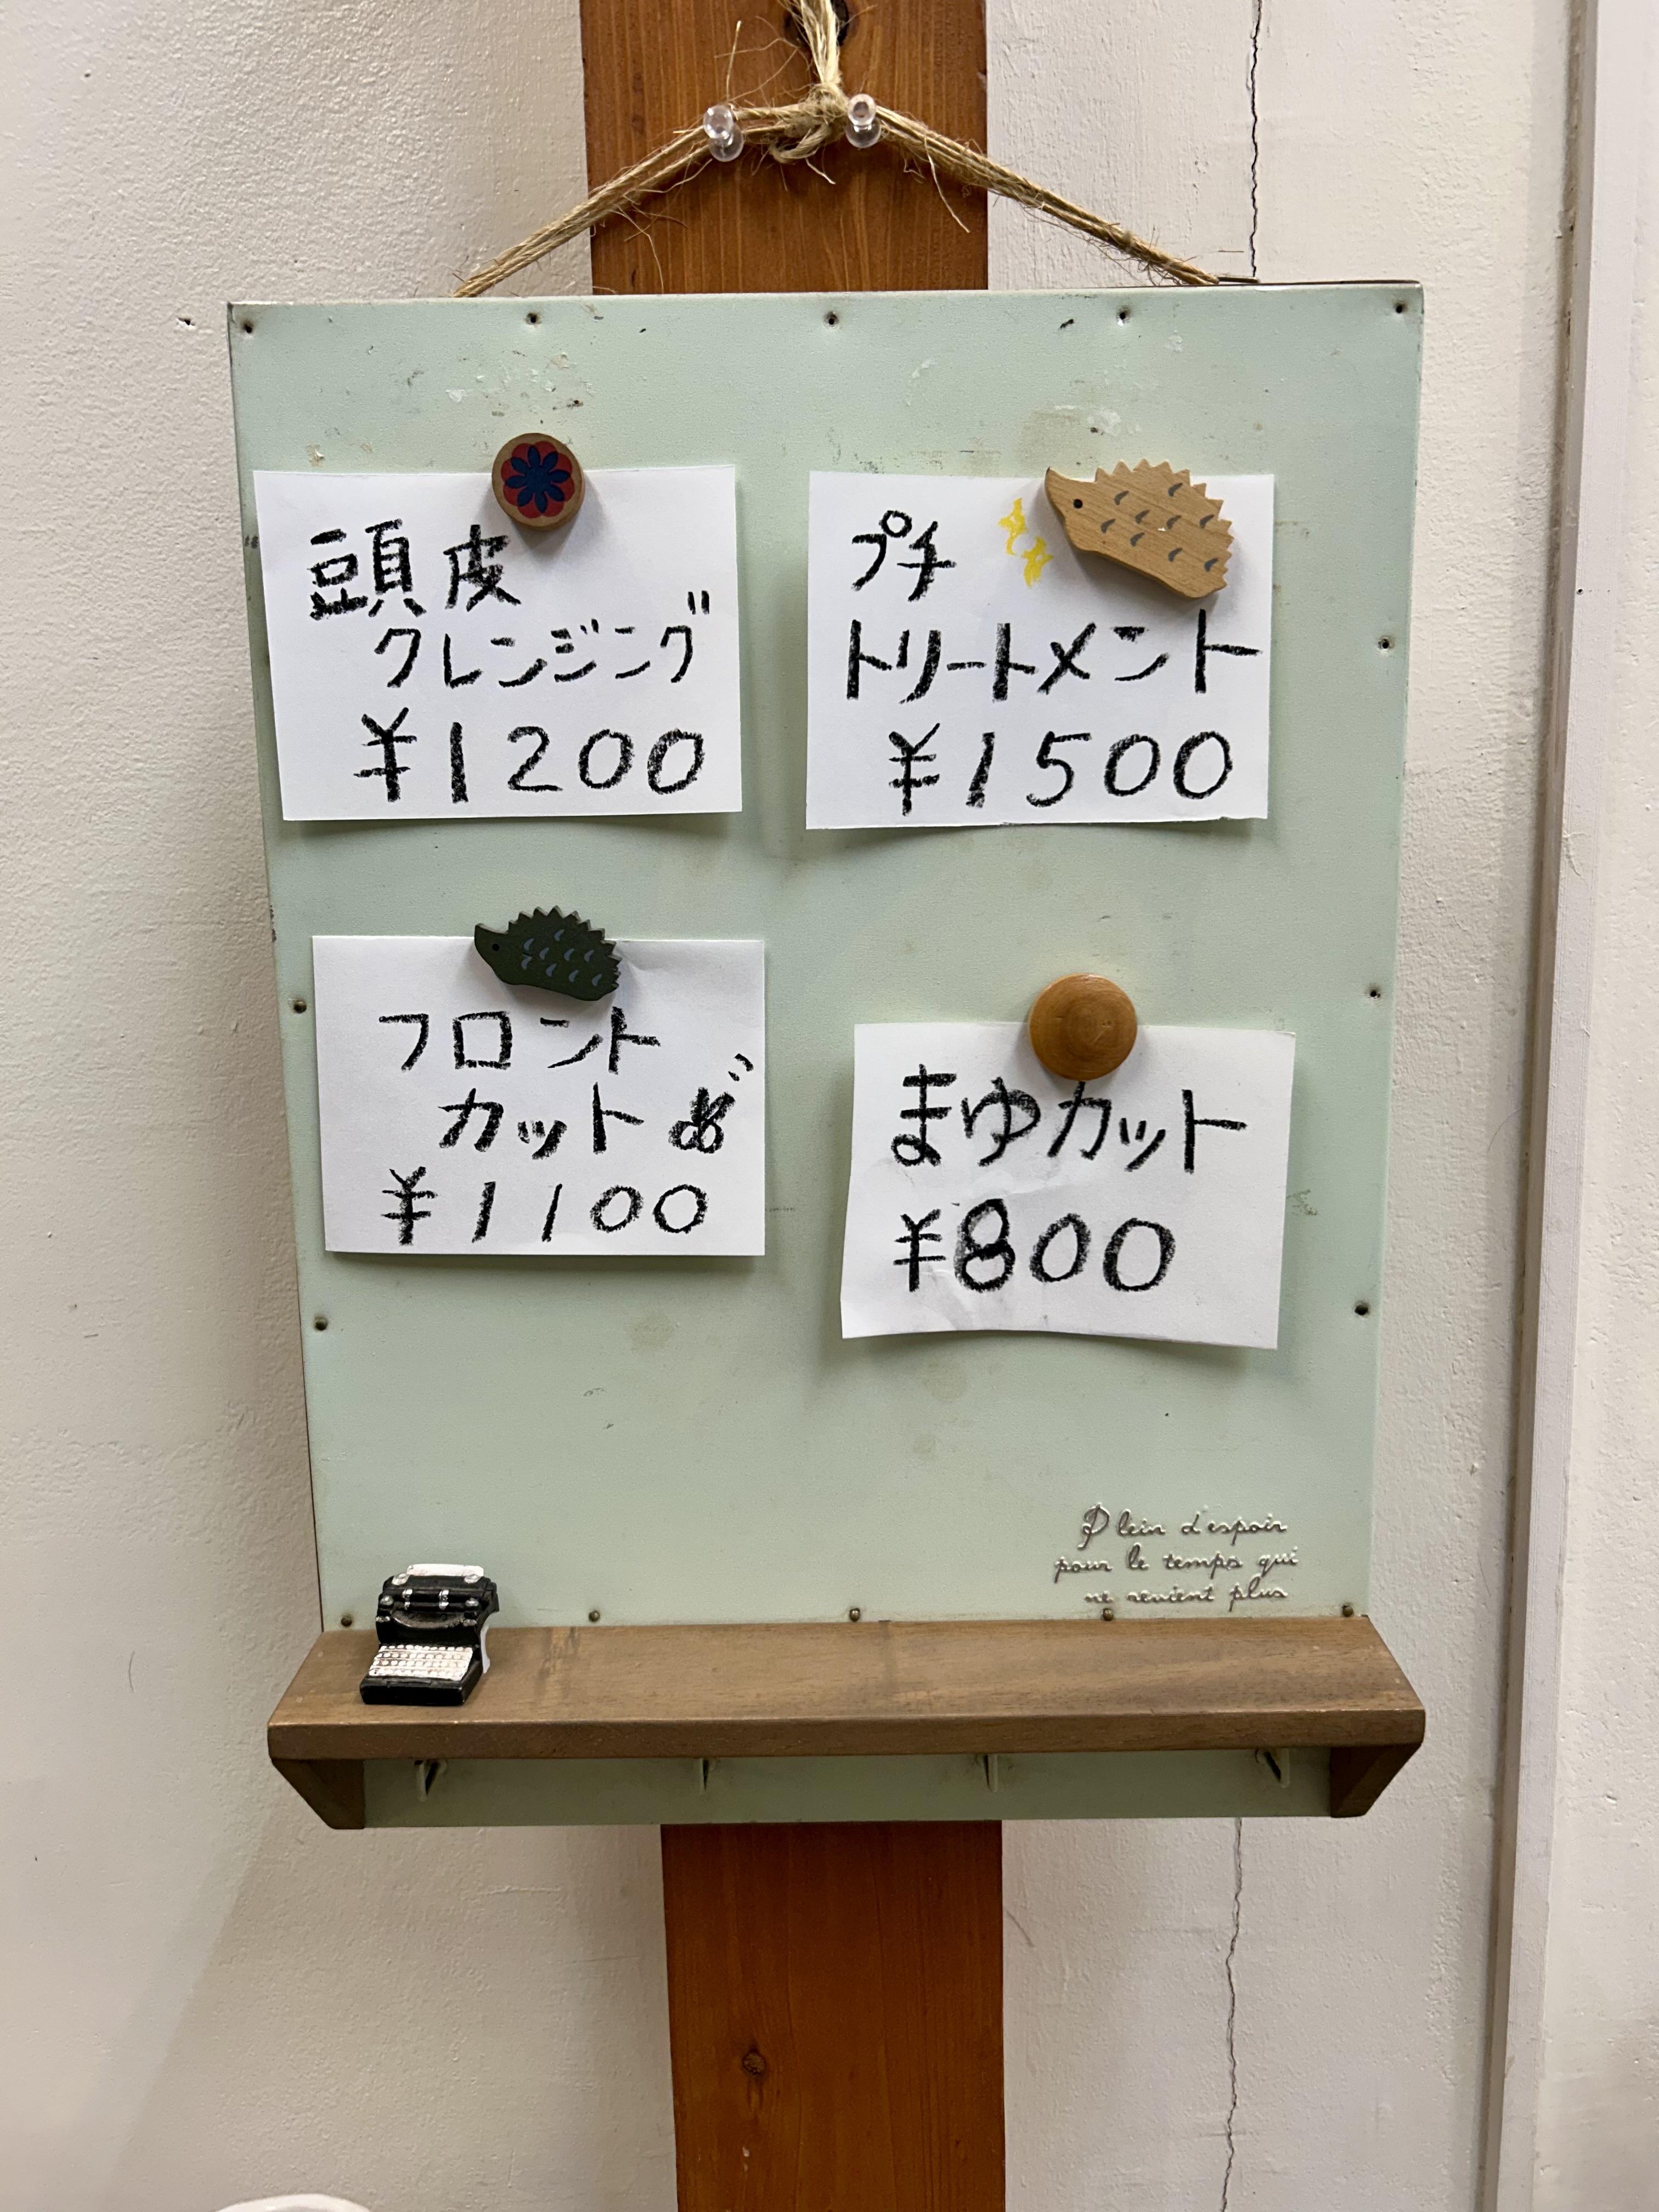 頭皮
クレンジング
¥1200
プチ
トリートメント
¥1500
フロント
カット
¥1100
まゆカット
¥800
Plein d'espoir
pour le temps qui
ne revient plus